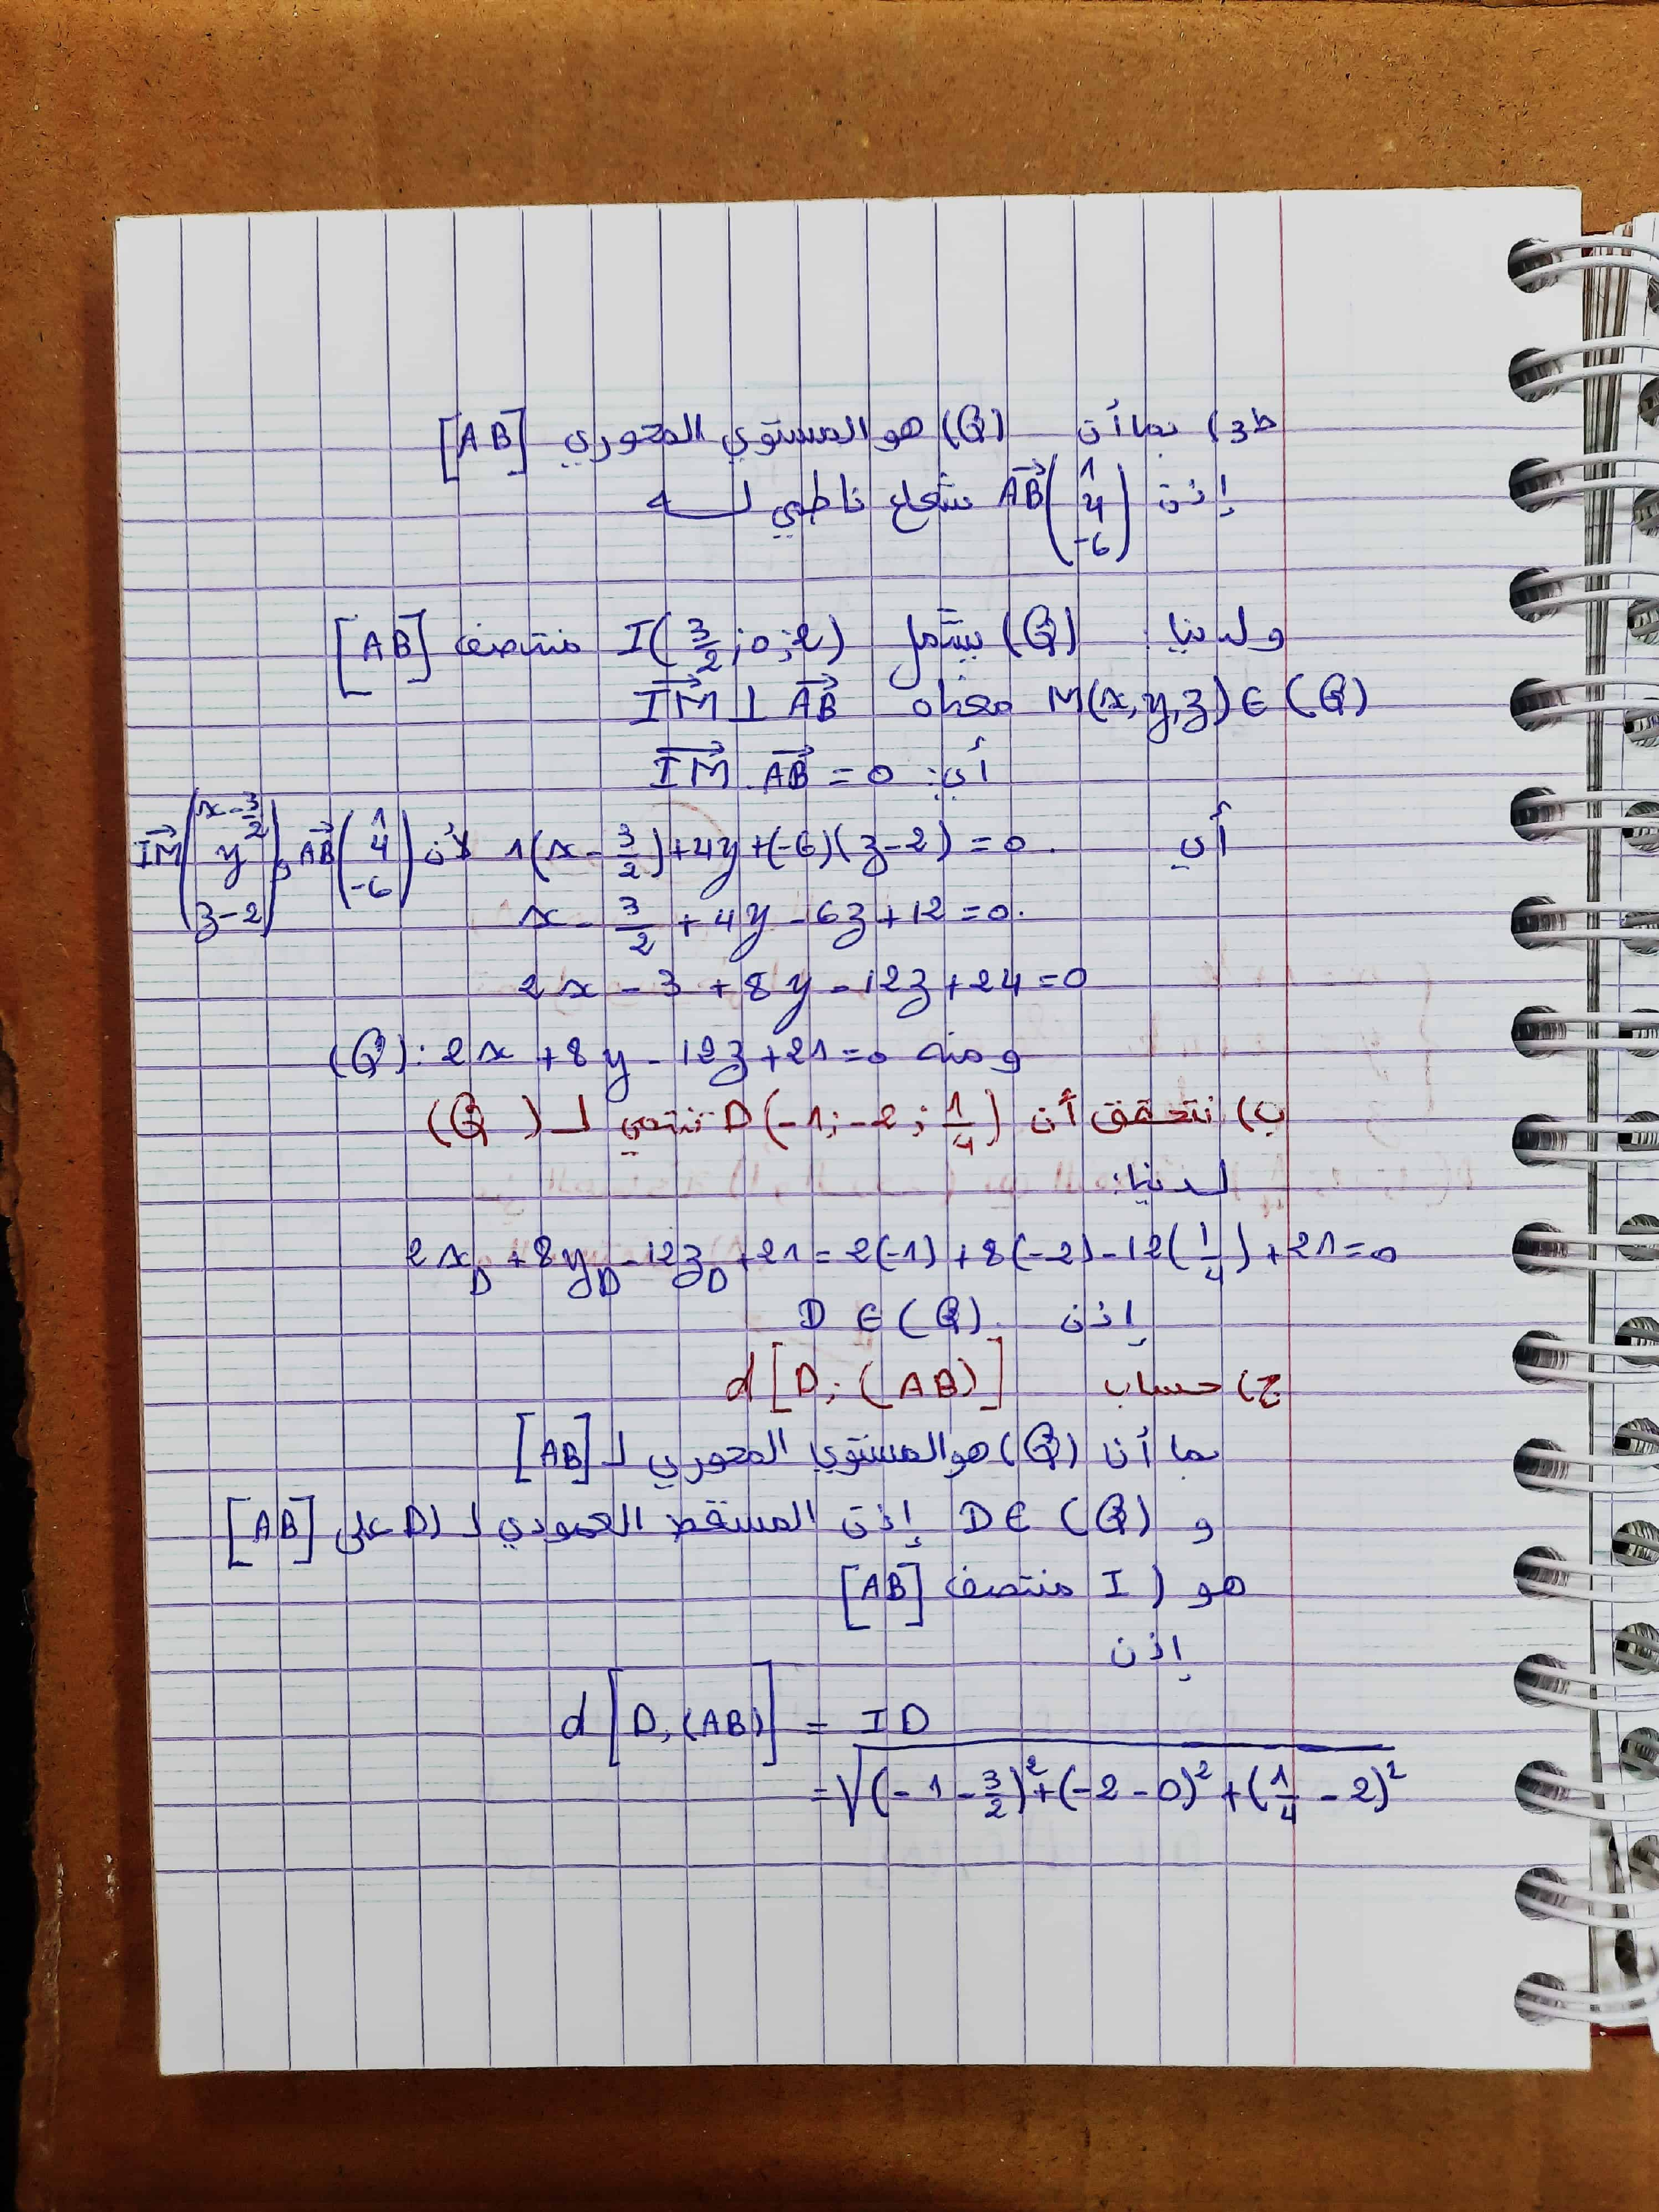 ط3) بما أن (Q) هو المستوي المحوري [AB]
إذن AB(1 4 -6) شعاع ناظمي لـه
ولدينا (Q) يشمل I(3/2;0;2) منتصف [AB]
M(x,y,z)∈(Q) معناه IM⊥AB
أي: IM.AB=0
أي 1(x-3/2)+4y+(-6)(z-2)=0. لأن AB(1 4 -6), IM(x-3/2 y z-2)
x-3/2+4y-6z+12=0.
2x-3+8y-12z+24=0
ومنه (Q):2x+8y-12z+21=0
ب) نتحقق أن D(-1;-2;1/4) تنتمي لـ (Q)
لدينا:
2xD+8yD-12zD+21=2(-1)+8(-2)-12(1/4)+21=0
إذن D∈(Q).
ج) حساب d[D;(AB)]
بما أن (Q) هو المستوي المحوري لـ [AB]
و D∈(Q) إذن المسقط العمودي لـ D على [AB]
هو (I منتصف [AB]
إذن
d[D,(AB)] = ID
=√(-1-3/2)²+(-2-0)²+(1/4-2)²